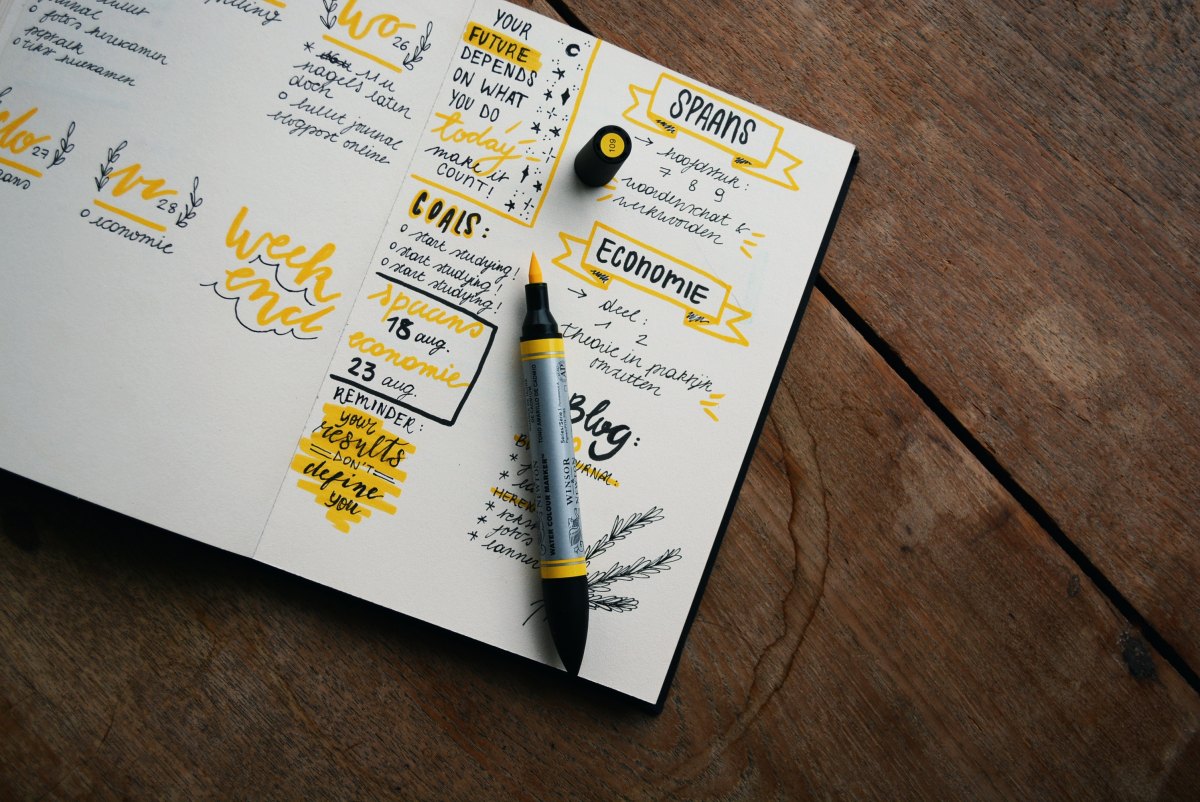 foto's herexamen
tekst herexamen
wo 26
* 11u
nagels laten
doch
o bullet journal
blogpost online
do 27
vr 28
o economie
Week
end
YOUR
FUTURE
DEPENDS
ON WHAT
YOU DO
today
make it
COUNT!
GOALS:
o start studying!
o start studying!
o start studying!
spaans
18 aug.
economie
23 aug.
REMINDER:
your
results
DON'T
define
you
SPAANS
→ hoofdstuk:
7 8 9
woordenschat &
werkwoorden
ECONOMIE
→ deel:
1 2
theorie in praktijk
omzetten
Blog:
* tekst
* foto's
109
WINSOR
NEWTON
WATER COLOUR MARKER